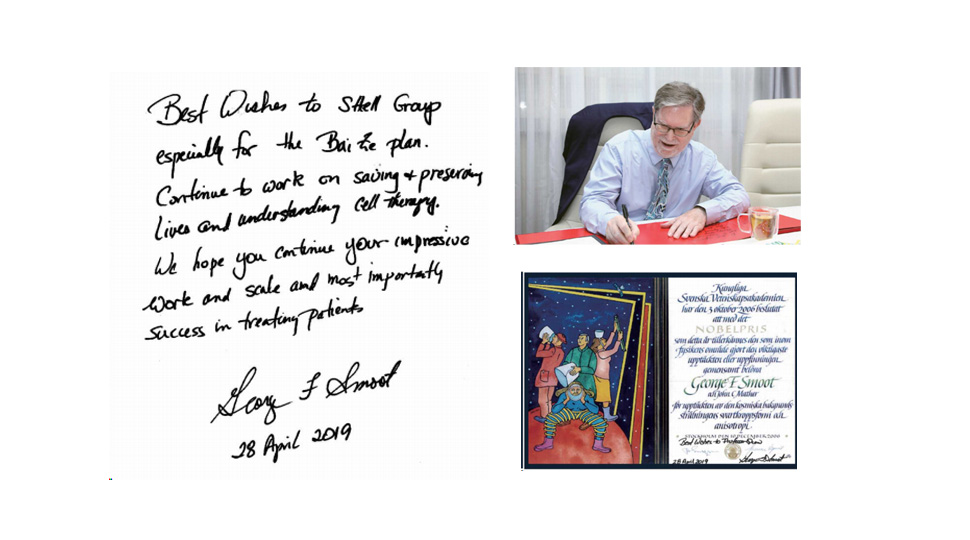 Best Wishes to Group
especially for the Bai Ze plan.
Continue to work on saving + preserving
lives and understanding cell therapy.
We hope you continue your impressive
work and scale and most importantly
success in treating patients
George F Smoot
28 April 2019
Kungliga
Svenska Vetenskapsakademien
har den 3 oktober 2006 beslutat
att med det
NOBELPRIS
som detta år tillerkännes den som inom
fysikens område gjort den viktigaste
upptäckten eller uppfinningen
gemensamt belöna
George F Smoot
och John C Mather
för upptäckten av den kosmiska bakgrunds-
strålningens svartkroppsform och
anisotropi.
STOCKHOLM DEN 10 DECEMBER 2006
Best Wishes to
28 April 2019 George F Smoot